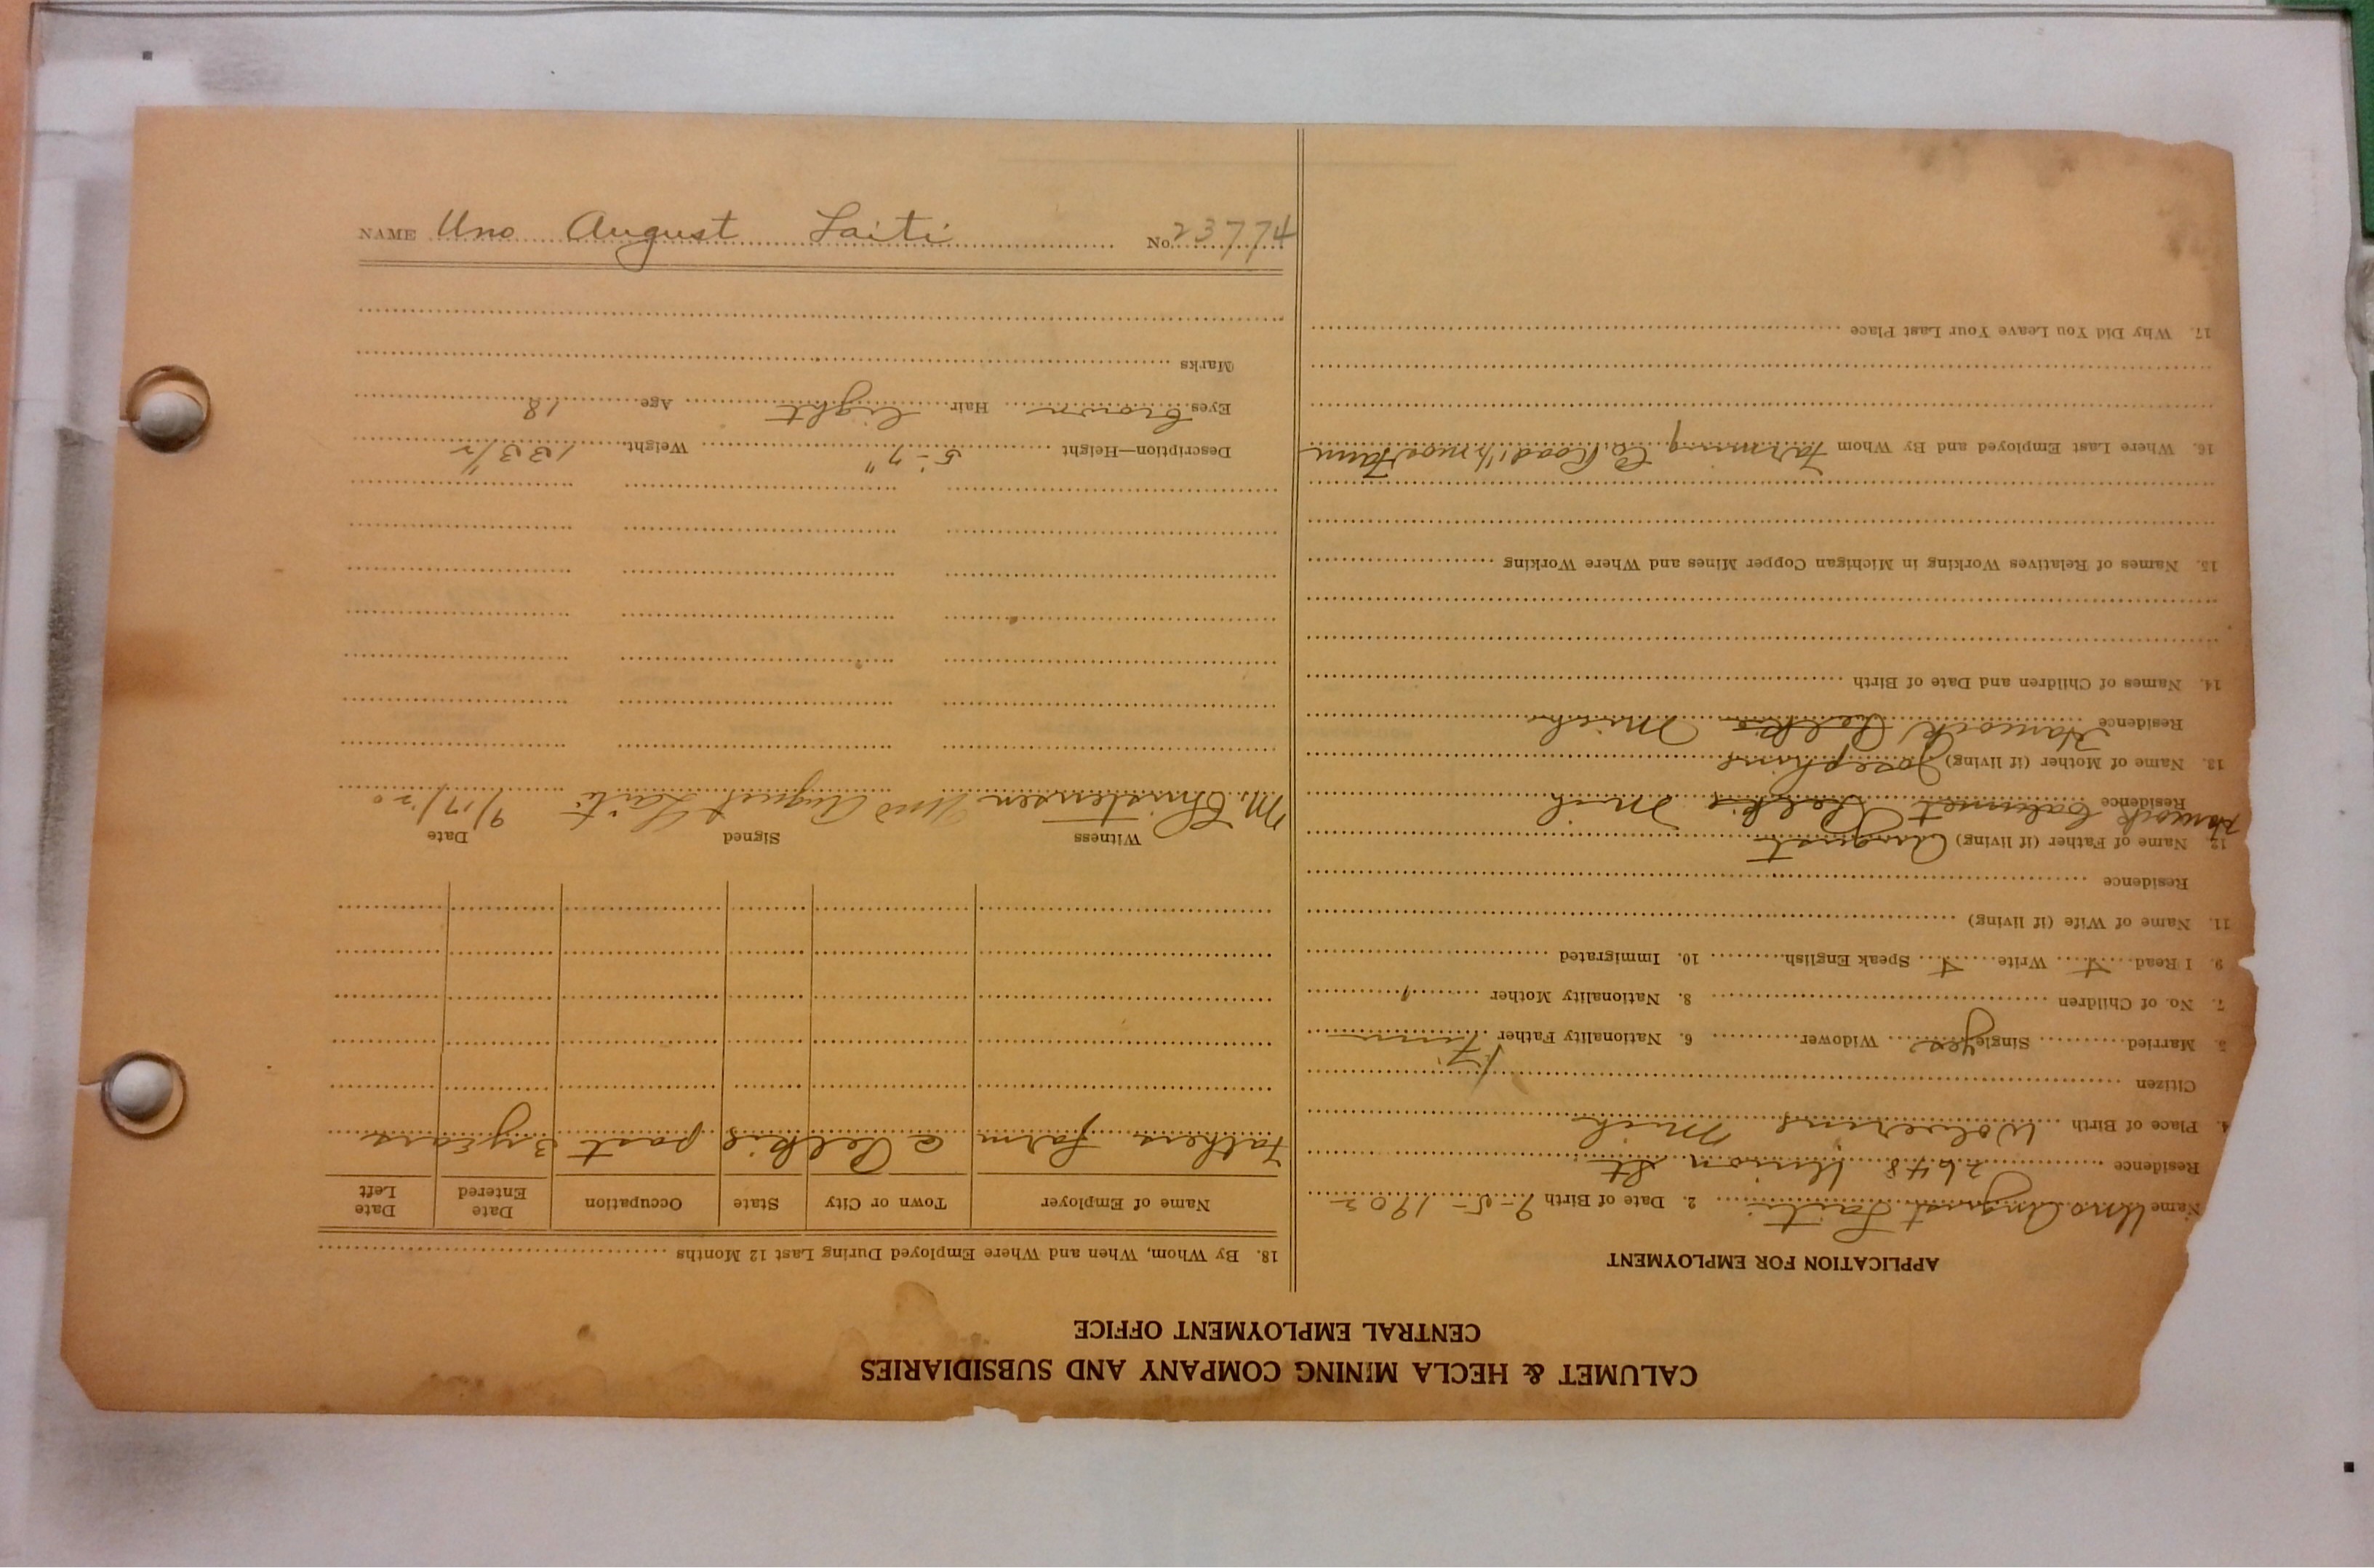 CALUMET & HECLA MINING COMPANY AND SUBSIDIARIES
CENTRAL EMPLOYMENT OFFICE
APPLICATION FOR EMPLOYMENT
Name Uno August Laiti 2. Date of Birth 9-5-1902
Residence 2648 Union St
4. Place of Birth Wolverine Mich
Citizen
5. Married Single yes Widower 6. Nationality Father Finn
7. No. of Children 8. Nationality Mother "
9. I Read + Write + Speak English 10. Immigrated
11. Name of Wife (if living)
Residence
12. Name of Father (if living) August
Residence Hancock Calumet Pelkie Mich
13. Name of Mother (if living) Josephine
Residence Hancock Pelkie Mich
14. Names of Children and Date of Birth
15. Names of Relatives Working in Michigan Copper Mines and Where Working
16. Where Last Employed and By Whom Farming Co. Road Farm
17. Why Did You Leave Your Last Place
18. By Whom, When and Where Employed During Last 12 Months
Name of Employer Town or City State Occupation Date Entered Date Left
Fathers farm @ Pelkie past 3 years
Witness Signed Date
M. Christensen Uno August Laiti 9/17/20
Description—Height 5'-7" Weight 133 1/2
Eyes brown Hair light Age 18
Marks
NAME Uno August Laiti No. 23774